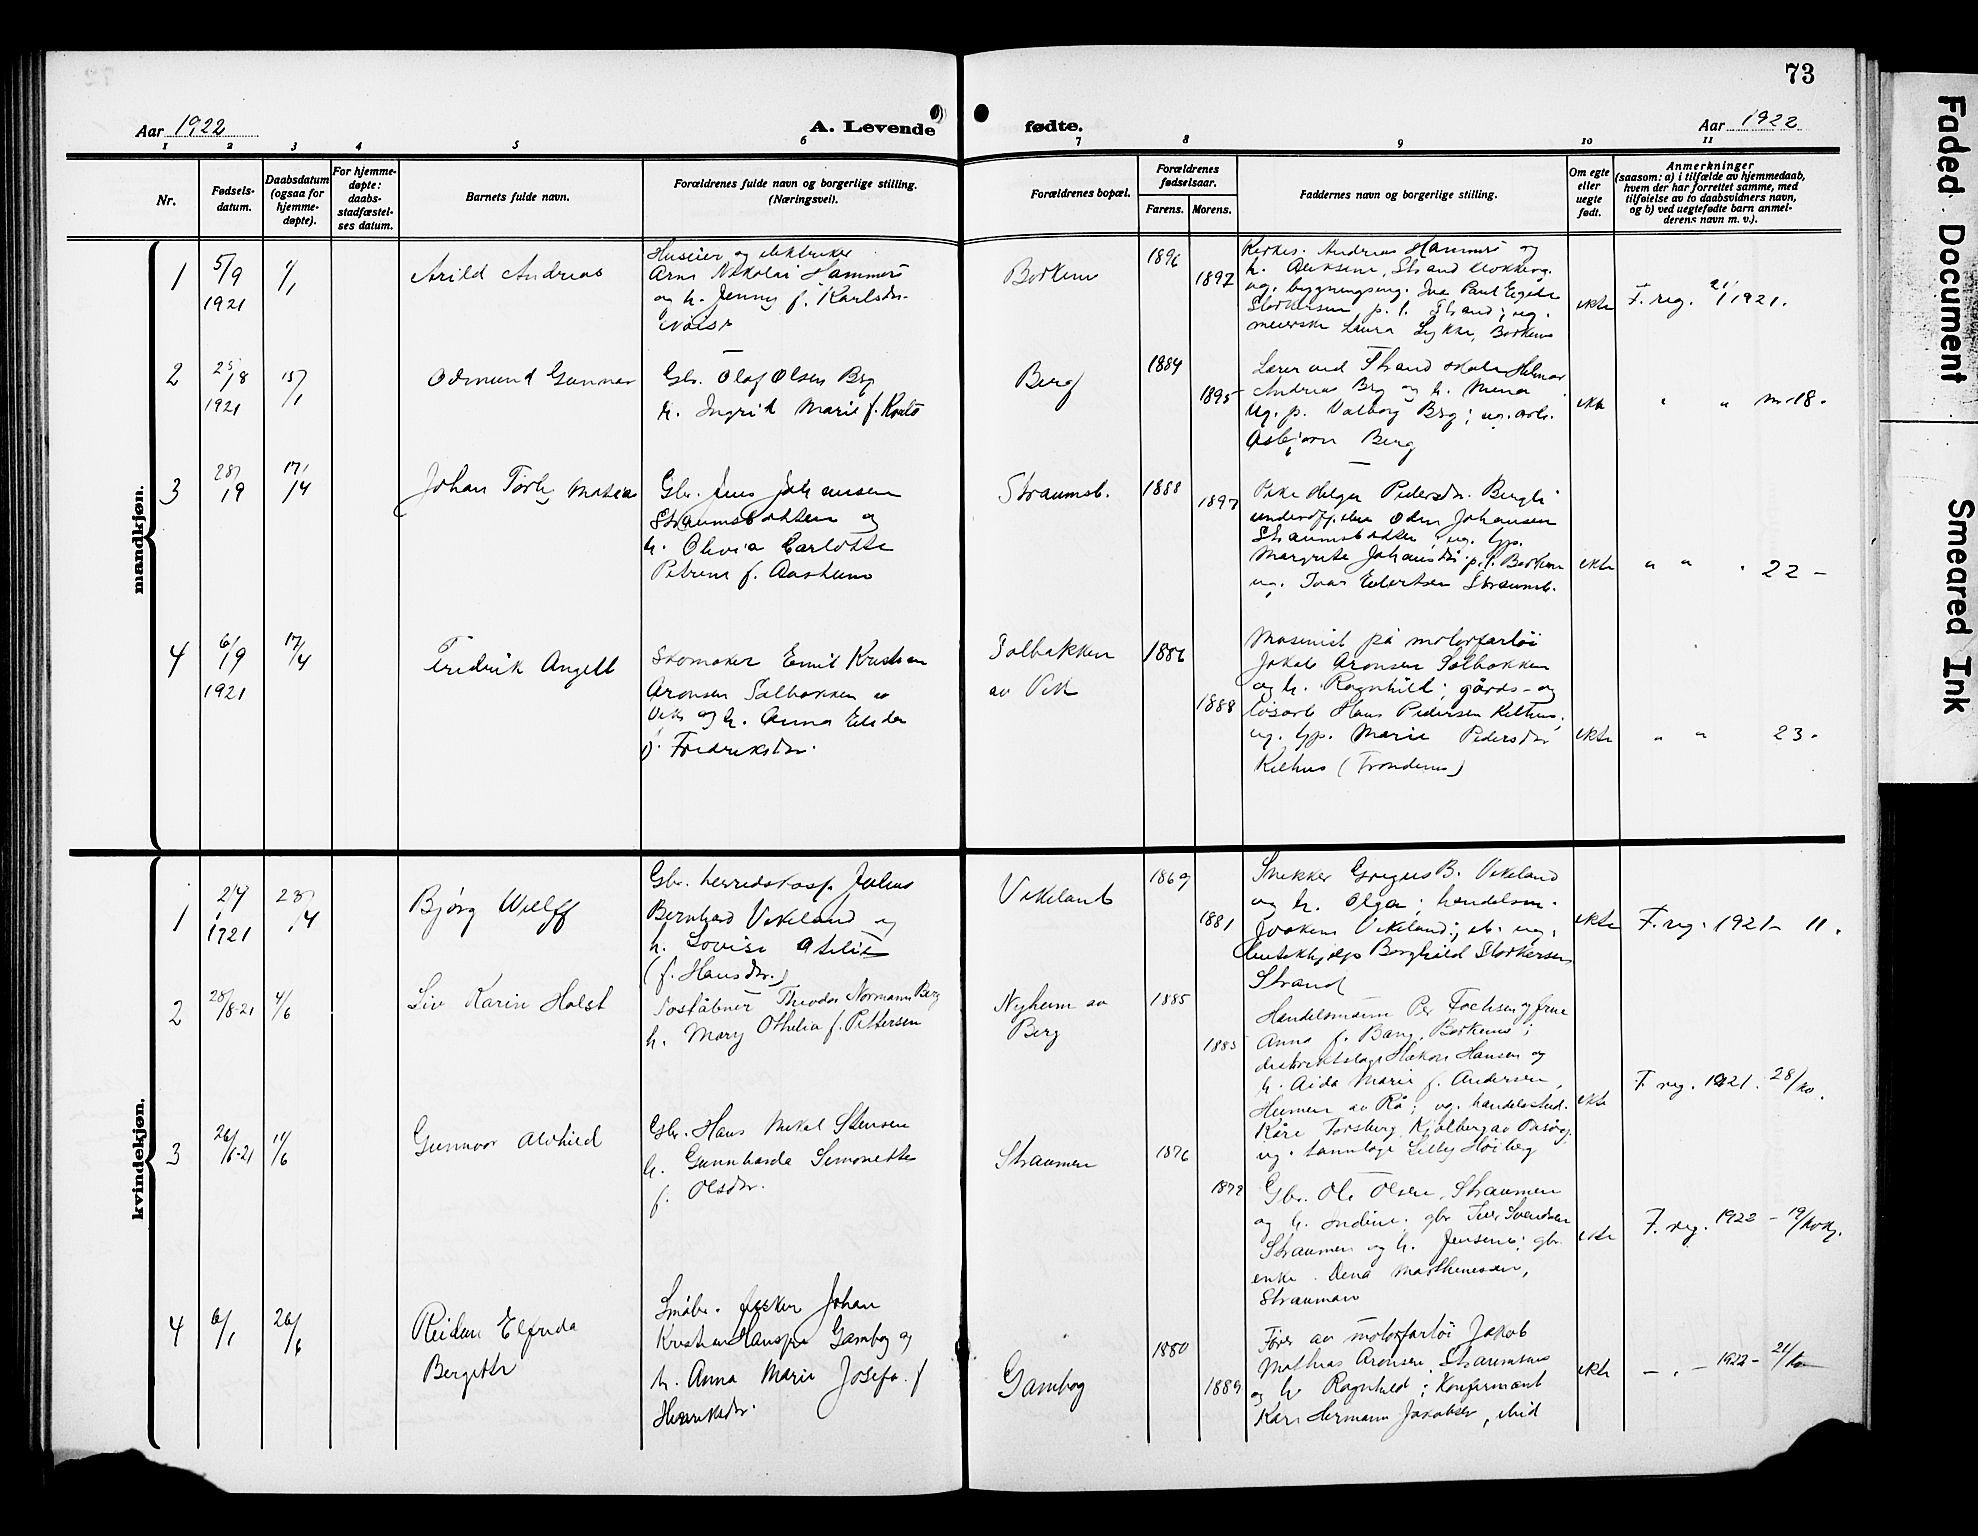 73
Aar 1922
A. Levende fødte.
Aar 1922
1 2 3 4 5 6 7 8 9 10 11
Nr.
Fødsels-
datum.
Daabsdatum
(ogsaa for
hjemme-
døpte).
For hjemme-
døpte:
daabs-
stadfæstel-
ses datum.
Barnets fulde navn.
Forældrenes fulde navn og borgerlige stilling.
(Næringsvei).
Forældrenes bopæl.
Forældrenes
fødselsaar.
Farens. Morens.
Faddernes navn og borgerlige stilling.
Om egte
eller
uegte
født.
Anmerkninger
(saasom: a) i tilfælde av hjemmedaab,
hvem der har forrettet samme, med
tilføielse av to daabsvidners navn,
og b) ved uegtefødte barn anmel-
derens navn m. v.).
mandkjøn.
1
5/9
1921
1/1
Arild Andreas
Huseier og
Arne Nikolai Hammer
og h. Jenny f. Karlsdr.
Borkenes
1896
1897
Andreas Hammer og
h. Strand
bygningsing. Paul
Storkersen p. t. Strand; ug.
meierske Laura Lykke, Borkenes
ekte
F. reg. 21/1 1921.
2
25/8
1921
15/1
Odmund Gunnar
Gbr. Olaf Olsen Berg
h. Ingrid Marie f.
Berg
1884
1895
Lærer ved Strand skole Helmar
Andreas Berg og h. Mena
ug. p. Valborg Berg; ug. arb.
Asbjørn Berg
ekte
" " nr 18.
3
28/9
17/4
Johan
Gbr. Jens Johansen
Straumsbotten og
h. Olivia Carlotte
Petrine f. Aasheim
Straumsb.
1888
1897
Pike Helga Pedersdr. Bergli
Oden Johansen
Straumsbotten ug. tjp.
Margrete Johansdr. p. t. Borkenes
ug. Ivar Edvartsen Straumsb.
ekte
" " " 22 -
4
6/9
1921
17/4
Fredrik Angell
Skomaker Emil Kristian
Aronsen Solbakken av
Vik og h. Anna
f. Fredriksdr.
Solbakken
av Vik
1886
1888
Masinist på motorfartøi
Jakob Aronsen Solbakken
og h. Ragnhild; gårds- og
løsarb. Hans Pedersen Kilhus;
ug. tjp. Marie Pedersdr.
Kilhus (Trondenes)
ekte
" " 23.
kvindekjøn.
1
2/4
1921
23/4
Bjørg Wulff
Gbr. herredskass. Julius
Bernhard Vikeland og
h. Lovise Otelie
(f. Hansdr.)
Vikeland
1869
1881
Snekker Gregus B. Vikeland
og h. Olga; handelsm.
Joakim Vikeland; ug.
Borghild Storkersen
Strand
ekte
F. reg. 1921 - 11.
2
28/8-21
4/6
Liv Karin Holst
Poståbner Theodor Normann Berg
h. Mary Othelia f. Pettersen
Nyheim av
Berg
1885
1885
Handelsmann Per Fochsen og frue
Anna f. Bang, Borkenes;
distriktslæge Håkon Hansen og
h. Aida Marie f. Andersen,
Heimen av Rå; ug. handelsbed.
Kåre Forsberg, Kjelberg av
ug. tannlæge Lilly Høibæg
ekte
F. reg. 1921. 28/
3
26/
11/6
Gunnvor Alvhild
Gbr. Hans Mikal Stensen
h. Gunnharda Simonette
f. Olsdr.
Straumen
1876
1879
Gbr. Ole Olsen, Straumen
og h. Indine; gbr. Svendsen
Straumen og h. Jensine; gbr.
enke Dena Marthenesen,
Strauman
ekte
F. reg. 1922 - 19/
4
6/1
26/6
Reidun Elfrida
Bergitte
Småbr. fisker Johan
Kristian Gambog og
h. Anna Marie Josefa f.
Henriksdr.
Gambog
1880
1889
Fører av motorfartøi Jakob
Mathias Aronsen, Straumsnes
og h. Ragnhild; Konfirmant
Karl Hermann Jakobsen, ibid
ekte
- " - 1922 - 21/
Faded Document
Smeared Ink